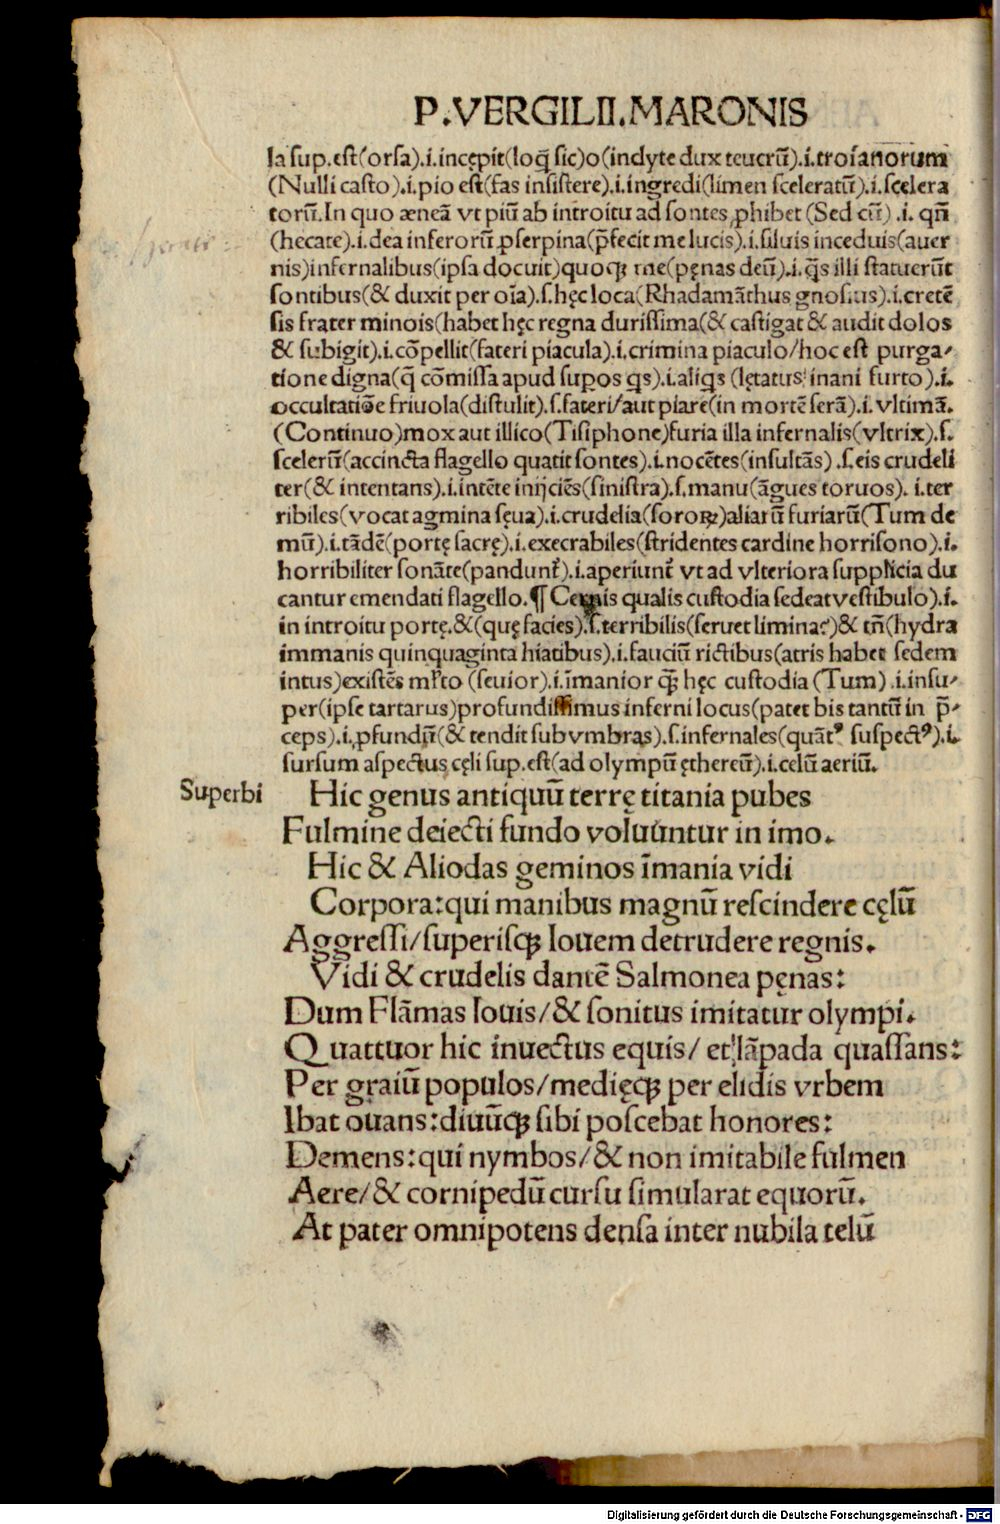 P.VERGILII.MARONIS
la sup.est(orsa).i.incępit(loq̃ sic)o(inclyte dux teucrũ).i.troianorum
(Nulli casto).i.pio est(fas insistere).i.ingredi(limen sceleratũ).i.scelera
torũ.In quo æneã vt piũ ab introitu ad sontes ꝓhibet (Sed cũ) .i. qñ
(hecate).i.dea inferorũ ꝓserpina(p̃fecit me lucis).i.siluis inceduis(auer
nis)infernalibus(ipsa docuit)quoqꝫ me(pęnas deũ).i.q̃s illi statuerũt
sontibus(& duxit per oĩa).s.hęc loca(Rhadamãthus gnosius).i.cretẽ
sis frater minois(habet hęc regna durissima(& castigat & audit dolos
& subigit).i.cõpellit(fateri piacula).i.crimina piaculo/hoc est purga⸗
tione digna(q̃ cõmissa apud supos qs).i.aliqs (lętatus inani furto).i.
occultatiõe friuola(distulit).s.fateri/aut piare(in mortẽ serã).i.vltimã.
(Continuo)mox aut illico(Tisiphone)furia illa infernalis(vltrix).s.
scelerũ(accincta flagello quatit sontes).i.nocẽtes(insultãs) .s.eis crudeli
ter(& intentans).i.intẽte inijciẽs(sinistra).s.manu(ãgues toruos). i.ter
ribiles(vocat agmina sęua).i.crudelia(sororꝝ)aliarũ furiarũ(Tum de
mũ).i.tãdẽ(portę sacrę).i.execrabiles(stridentes cardine horrisono).i.
horribiliter sonãte(pandunt̃).i.aperiunt̃ vt ad vlteriora supplicia du
cantur emendati flagello.¶ Cernis qualis custodia sedeat vestibulo).i.
in introitu portę.&(quę facies).s.terribilis(seruet limina?)& tñ(hydra
immanis quinquaginta hiatibus).i.fauciũ rictibus(atris habet sedem
intus)existẽs ml̃to (seuior).i.ĩmanior q̃ꝫ hęc custodia (Tum) .i.insu⸗
per(ipse tartarus)profundissimus inferni locus(patet bis tantũ in p̃⸗
ceps).i.ꝓfundũ(& tendit sub vmbras).s.infernales(quãtꝰ suspectꝰ).i.
sursum aspectus cęli sup.est(ad olympũ ęthereũ).i.celũ aeriũ.
Superbi
Hic genus antiquũ terrę titania pubes
Fulmine deiecti fundo voluuntur in imo.
Hic & Aliodas geminos ĩmania vidi
Corpora:qui manibus magnũ rescindere cęlũ
Aggressi/superisqꝫ Iouem detrudere regnis.
Vidi & crudelis dantẽ Salmonea pęnas:
Dum Flãmas Iouis/& sonitus imitatur olympi.
Quattuor hic inuectus equis/ et lãpada quassans:
Per graiũ populos/medięqꝫ per elidis vrbem
Ibat ouans:diuũqꝫ sibi poscebat honores:
Demens:qui nymbos/& non imitabile fulmen
Aere/& cornipedũ cursu simularat equorũ.
At pater omnipotens densa inter nubila telũ
Digitalisierung gefördert durch die Deutsche Forschungsgemeinschaft - DFG